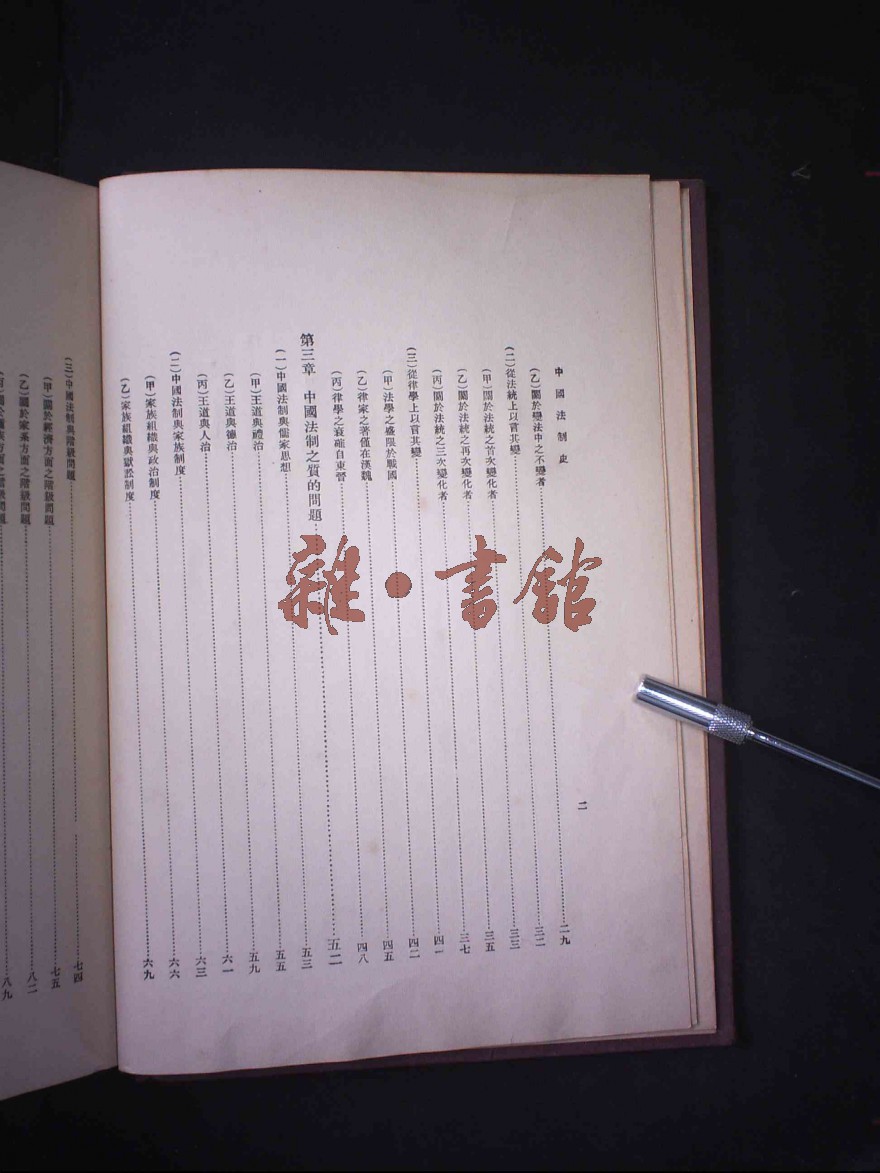 中國法制史
二
(乙)關於變法中之不變者……二九
(二)從法統上以言其變……三二
(甲)關於法統之首次變化者……三三
(乙)關於法統之再次變化者……三五
(丙)關於法統之三次變化者……三七
(三)從律學上以言其變……四一
(甲)法學之盛限於戰國……四二
(乙)律家之著僅在漢魏……四五
(丙)律學之衰確自東晉……四八
第三章 中國法制之質的問題……五二
(一)中國法制與儒家思想……五三
(甲)王道與禮治……五五
(乙)王道與德治……五九
(丙)王道與人治……六一
(二)中國法制與家族制度……六三
(甲)家族組織與政治制度……六六
(乙)家族組織與獄訟制度……六九
(三)中國法制與階級問題……七四
(甲)關於經濟方面之階級問題……七五
(乙)關於家系方面之階級問題……八二
族方面之階級問題……八九
雜·書館